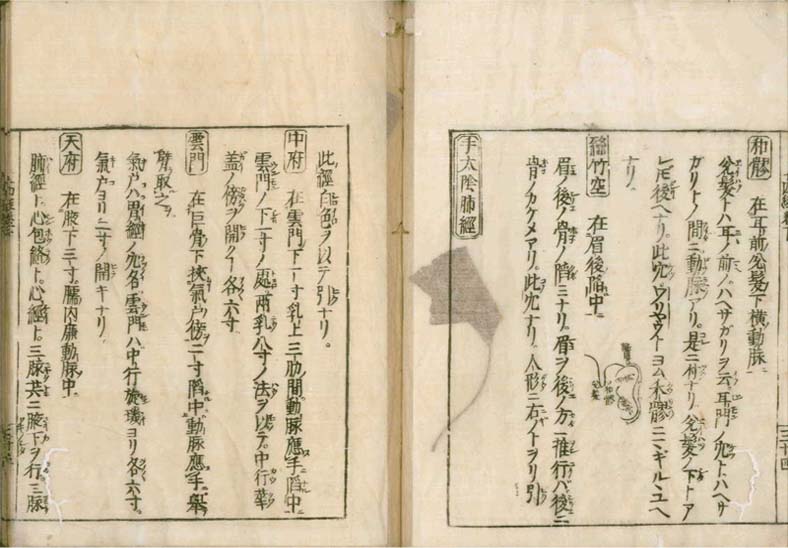 和髎 在耳前兌髮下横動脉
兌髮トハ耳ノ前ノハヘサガリヲ云耳門ノ穴トハヘサ
ガリトノ間ニ動脉アリ。是ニ付ナリ。兌髮ノ下トア
レ𪜈後ヘナリ。此穴クワリヤウトヨム禾髎ニマギルヽユヘ
ナリ。
絲竹空 在眉後陷中
眉ノ後ノ骨ノ陷ミナリ。眉ヲ後ノ方ヘ推行バ後ニ
骨ノカケメアリ。此穴ナリ。人形ニ右イトヲリ引
手太陰肺經
此經白色ヲ以テ引ナリ。
中府 在雲門下一寸乳上三肋間動脉應手陷中
雲門ノ下一寸ノ處兩乳八寸ノ法ヲ以テ。中行華
盖ノ傍ヲ開クヿ各六寸
雲門 在巨骨下挾氣戸傍二寸陷中動脉應手擧
臂取之
氣戸ハ胃經ノ穴各雲門ハ中行旋璣ヨリ各六寸。
氣戸ヨリ二寸ノ開キナリ。
天府 在腋下三寸。臑内廉動脉中
肺經ト。心包絡ト。心經ト。三脉共ニ腋下ヲ行。三脉